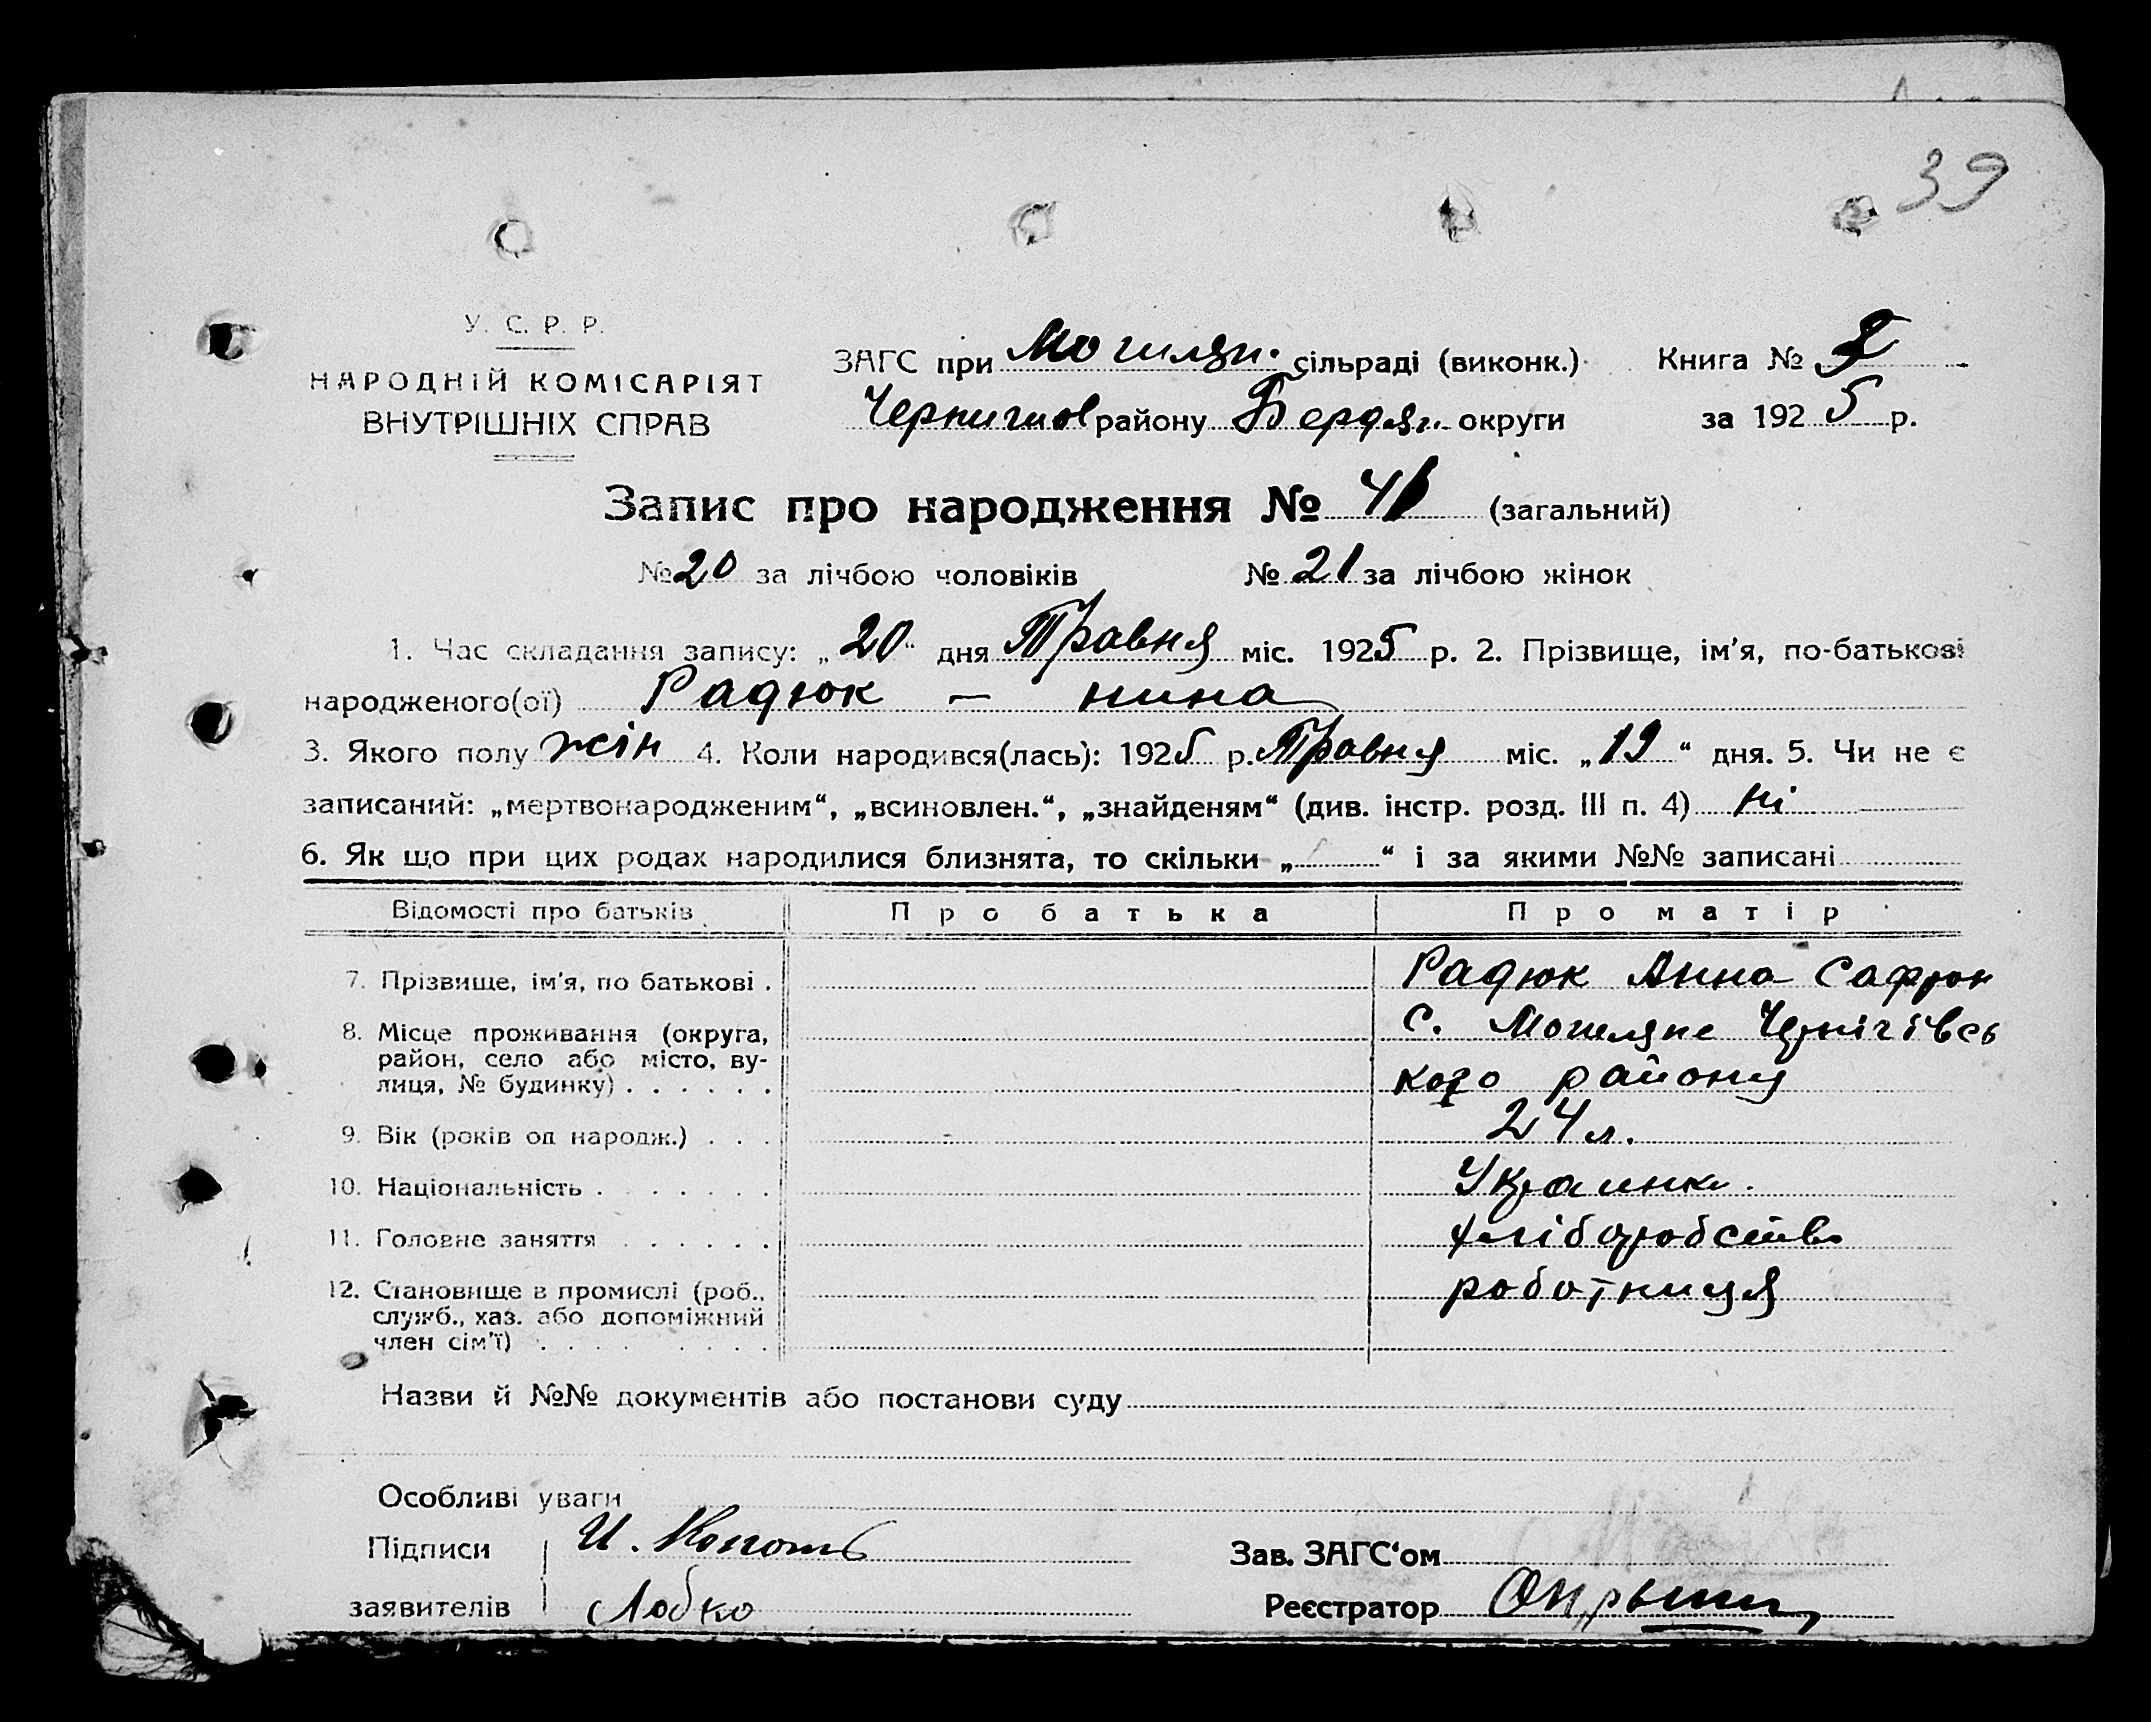 39
У. С. Р. Р.
НАРОДНІЙ КОМІСАРІЯТ
ВНУТРІШНІХ СПРАВ
ЗАГС при Могилян. сільраді (виконк.) Книга №
Чернигов району Бердян. округи за 1925 р.
Запис про народження № 41 (загальний)
№ 20 за лічбою чоловіків № 21 за лічбою жінок
1. Час складання запису: „20“ дня Травня міс. 1925 р. 2. Прізвище, ім'я, по-батькові
народженого(ої) Радюк — нина
3. Якого полу жін 4. Коли народився(лась): 1925 р. Травня міс. „19“ дня. 5. Чи не є
записаний: „мертвонародженим“, „всиновлен.“, „знайденям“ (див. інстр. розд. III п. 4) ні
6. Як що при цих родах народилися близнята, то скільки „ “ і за якими №№ записані
Відомості про батьків Про батька Про матір
7. Прізвище, ім'я, по батькові . Радюк Анна Сафрон
8. Місце проживання (округа, с. Могиляне Чернігівсь
район, село або місто, ву-
лиця, № будинку) . . . . . . кого району
9. Вік (років од народж.) . . . 24 л.
10. Національність . . . . . . . Украинка.
11. Головне заняття . . . . . . хліборобство
12. Становище в промислі (роб., роботниця
служб., хаз. або допоміжний
член сім'ї) . . . . . . . . .
Назви й №№ документів або постанови суду
Особливі уваги
Підписи И. Зав. ЗАГС'ом
заявителів Лобко Реєстратор